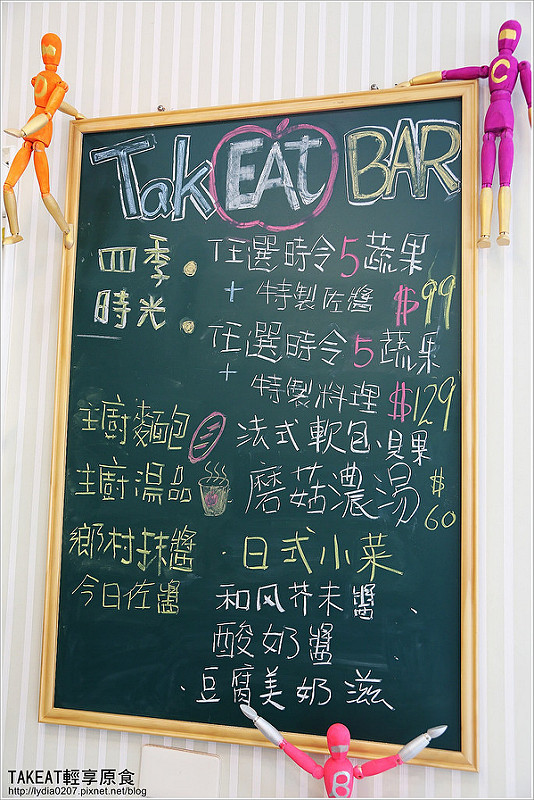 TakEAt BAR
四季
時光
任選時令5蔬果
+ 特製佐醬 $99
任選時令5蔬果
+ 特製料理 $129
主廚麵包 法式軟包、貝果
主廚湯品 磨菇濃湯 $60
鄉村抹醬 · 日式小菜
今日佐醬 和风芥末醬、
酸奶醬
豆腐美奶滋
C
B
TAKEAT輕享原食
http://lydia0207.pixnet.net/blog